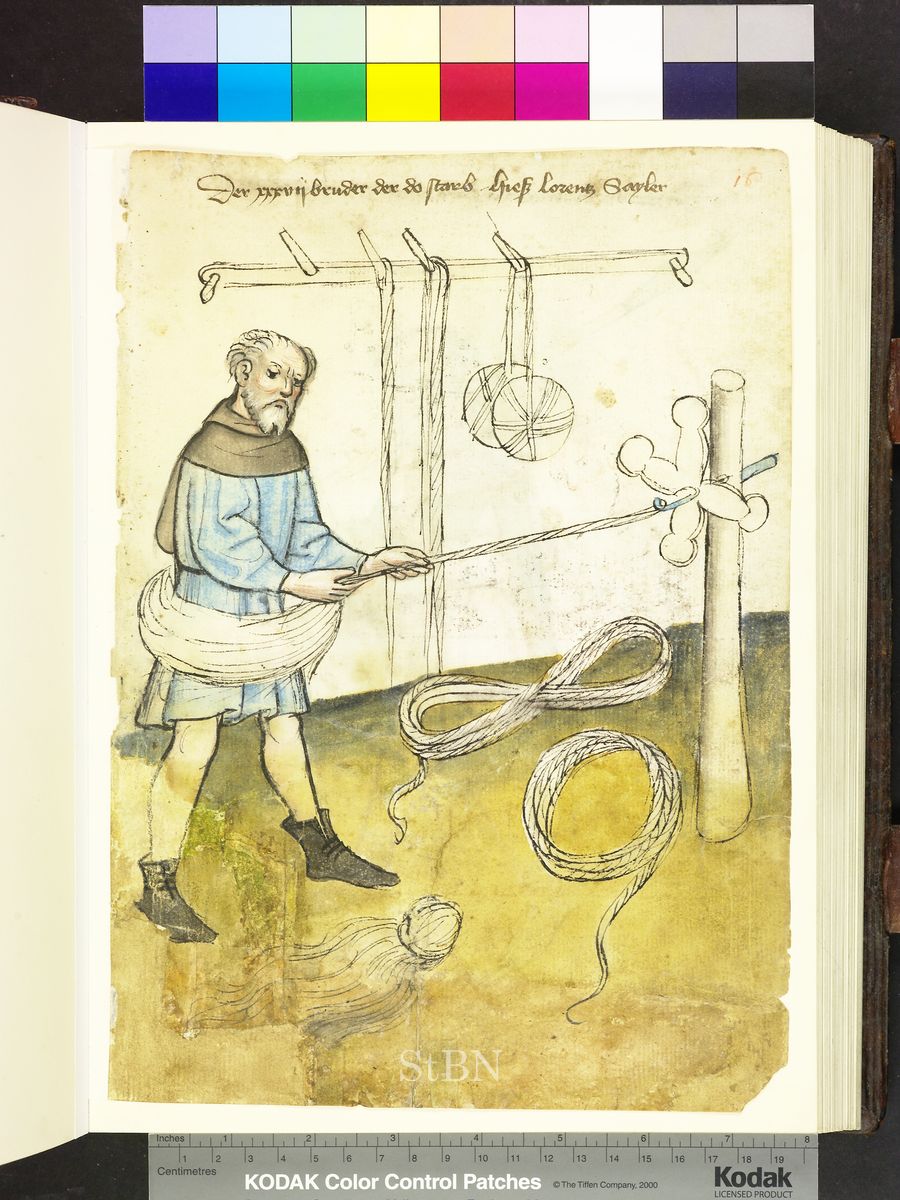 Der xxxvij bruder der do starb hieß lorentz Sayler
16
StBN
Inches 1 2 3 4 5 6 7 8
Centimetres 1 2 3 4 5 6 7 8 9 10 11 12 13 14 15 16 17 18 19
KODAK Color Control Patches © The Tiffen Company, 2000 Kodak
LICENSED PRODUCT